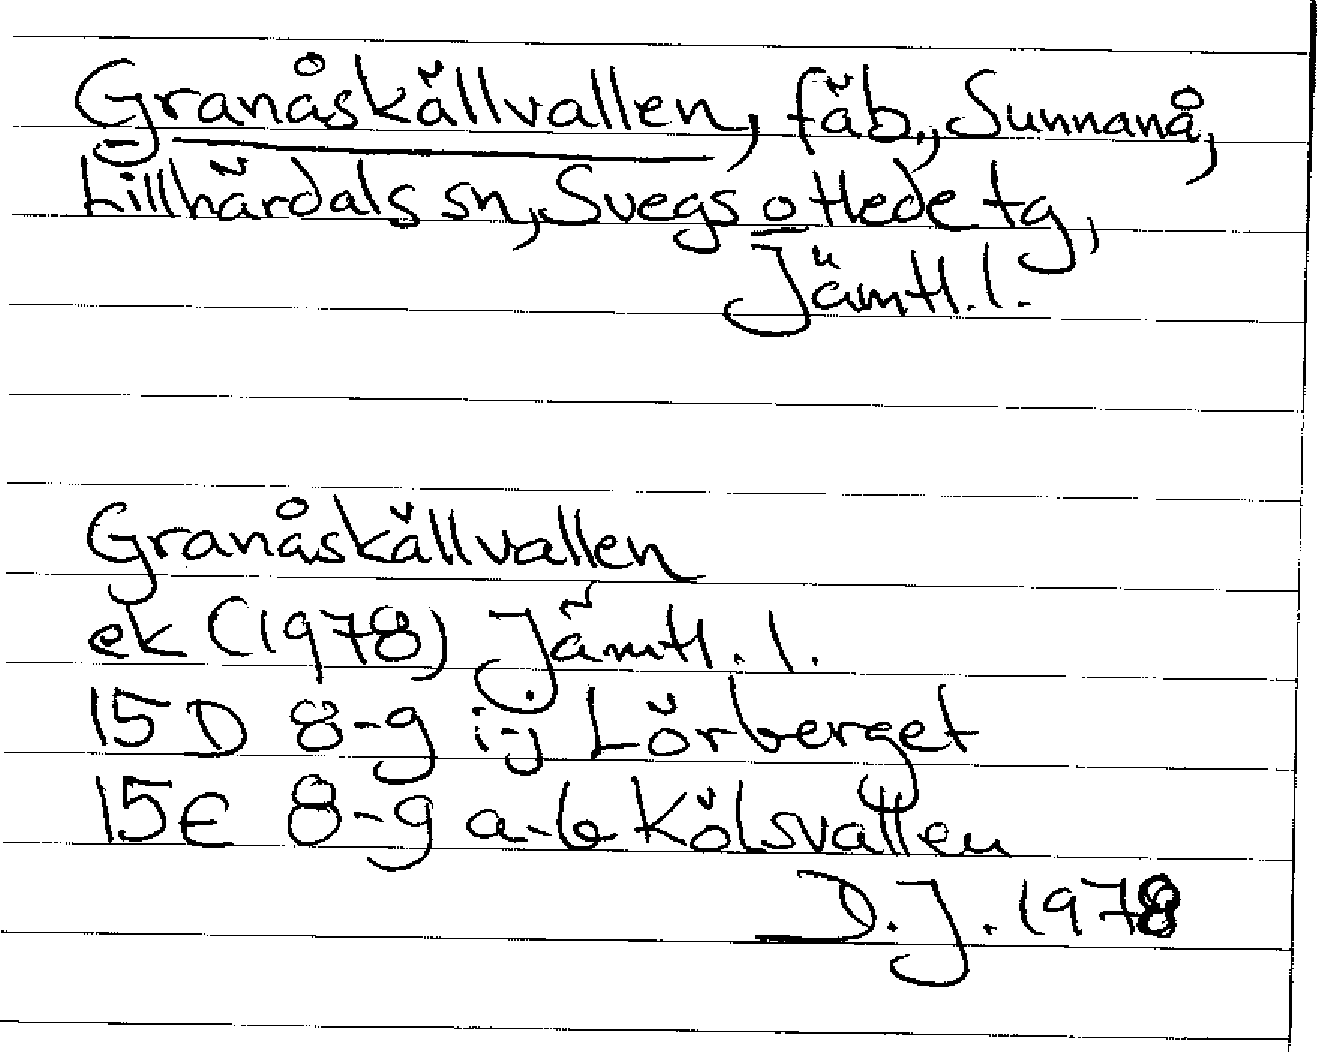 Granåskällvallen, fäb., Sunnanå,
Lillhärdals sn, Svegs o Hede tg,
Jämtl. l.
Granåskällvallen
ek (1978) Jämtl. l.
15D 8-g i-j Lörberget
15E 8-g a-b Kölsvallen
D.J. 1978